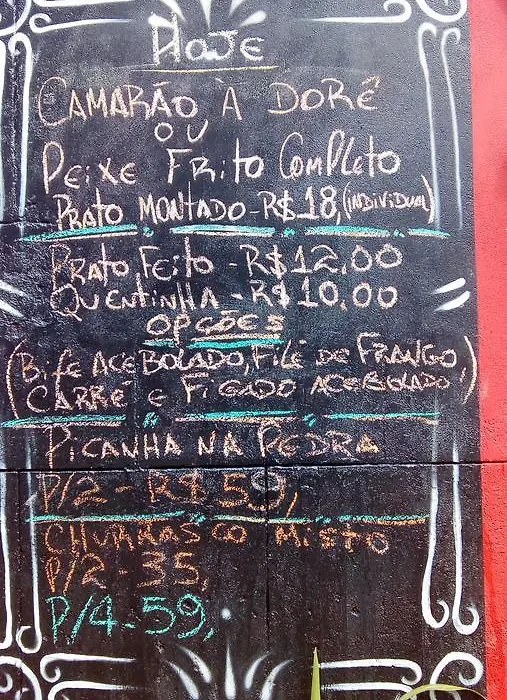 Hoje
CAMARÃO À DORÊ
OU
PEIXE FRITO COMPLETO
PRATO MONTADO - R$18, (INDIVIDUAL)
PRATO FEITO - R$12,00
QUENTINHA - R$10,00
OPÇÕES
(BIFE ACEBOLADO, FILÉ DE FRANGO,
CARRÉ E FIGADO ACEBOLADO)
PICANHA NA PEDRA
P/2 - R$59,
CHURRASCO MISTO
P/2 - 35,
P/4 - 59,